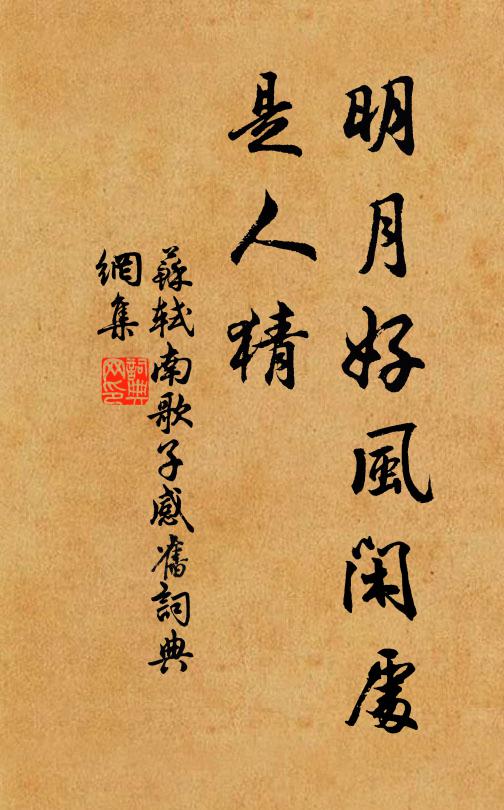 明月好風閑處
是人猜
蘇軾南歌子感舊詞典
網集
詞典网印